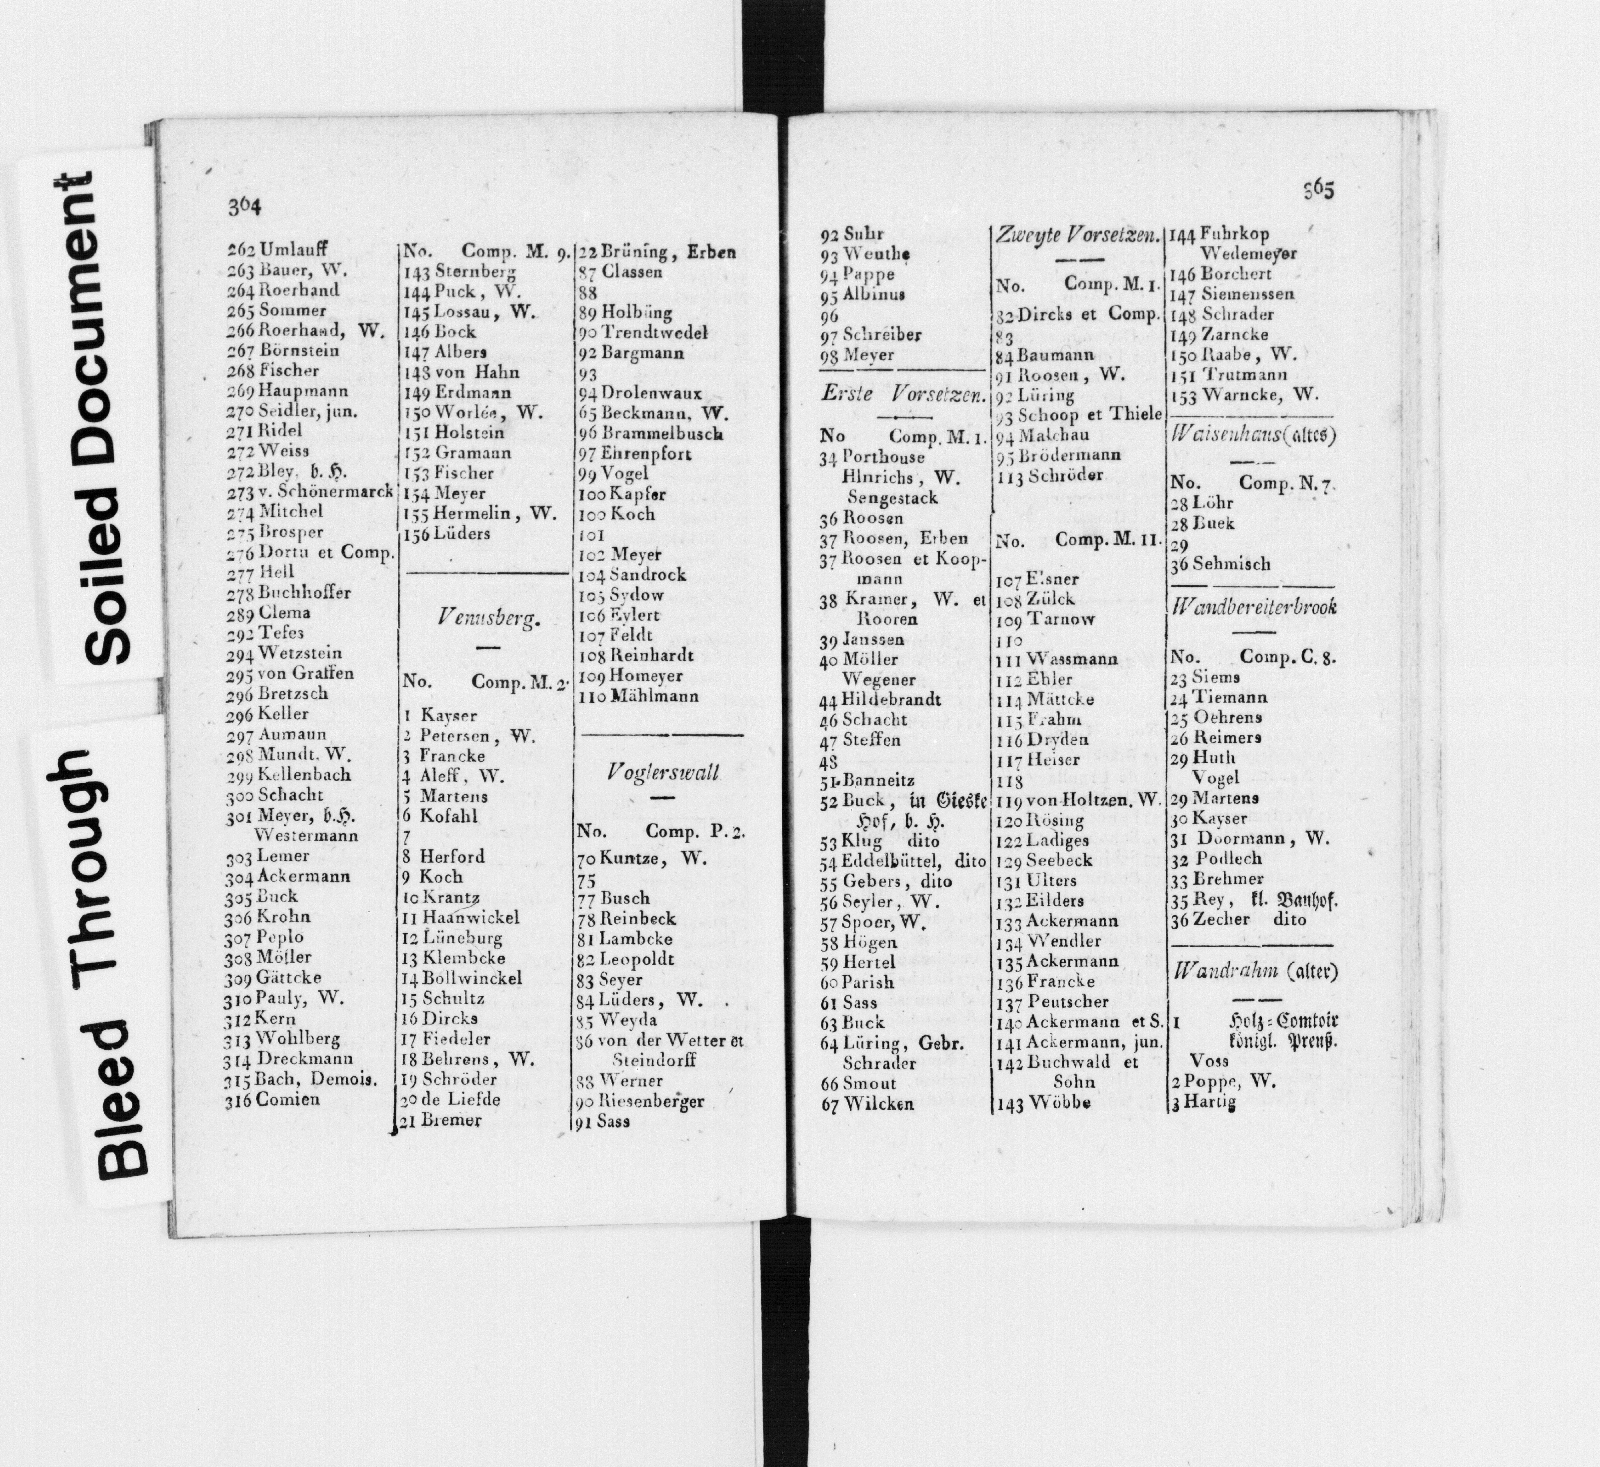 Soiled Document
Bleed Through
364
262 Umlauff
263 Bauer, W.
264 Roerhand
265 Sommer
266 Roerhand, W.
267 Börnstein
268 Fischer
269 Haupmann
270 Seidler, jun.
271 Ridel
272 Weiss
272 Bley, b. H.
273 v. Schönermarck
274 Mitchel
275 Brosper
276 Dortu et Comp.
277 Hell
278 Buchhoffer
289 Clema
292 Tefes
294 Wetzstein
295 von Graffen
296 Bretzsch
296 Keller
297 Aumann
298 Mundt, W.
299 Kellenbach
300 Schacht
301 Meyer, b. H.
Westermann
303 Lemer
304 Ackermann
305 Buck
306 Krohn
307 Peplo
308 Möller
309 Gättcke
310 Pauly, W.
312 Kern
313 Wohlberg
314 Dreckmann
315 Bach, Demois.
316 Comien
No. Comp. M. 9.
143 Sternberg
144 Puck, W.
145 Lossau, W.
146 Bock
147 Albers
148 von Hahn
149 Erdmann
150 Worlée, W.
151 Holstein
152 Gramann
153 Fischer
154 Meyer
155 Hermelin, W.
156 Lüders
Venusberg.
No. Comp. M. 2.
1 Kayser
2 Petersen, W.
3 Francke
4 Aleff, W.
5 Martens
6 Kofahl
7
8 Herford
9 Koch
10 Krantz
11 Haanwickel
12 Lüneburg
13 Klembcke
14 Bollwinckel
15 Schultz
16 Dircks
17 Fiedeler
18 Behrens, W.
19 Schröder
20 de Liefde
21 Bremer
22 Brüning, Erben
87 Classen
88
89 Holbüng
90 Trendtwedel
92 Bargmann
93
94 Drolenwaux
65 Beckmann, W.
96 Brammelbusch
97 Ehrenpfort
99 Vogel
100 Kapfer
100 Koch
101
102 Meyer
104 Sandrock
105 Sydow
106 Eylert
107 Feldt
108 Reinhardt
109 Homeyer
110 Mählmann
Voglerswall
No. Comp. P. 2.
70 Kuntze, W.
75
77 Busch
78 Reinbeck
81 Lambcke
82 Leopoldt
83 Seyer
84 Lüders, W.
85 Weyda
86 von der Wetter et
Steindorff
88 Werner
90 Riesenberger
91 Sass
365
92 Suhr
93 Weuthe
94 Pappe
95 Albinus
96
97 Schreiber
98 Meyer
Erste Vorsetzen.
No Comp. M. 1.
34 Porthouse
Hinrichs, W.
Sengestack
36 Roosen
37 Roosen, Erben
37 Roosen et Koop-
mann
38 Kramer, W. et
Rooren
39 Janssen
40 Möller
Wegener
44 Hildebrandt
46 Schacht
47 Steffen
48
51 Banneitz
52 Buck, in Gieske
Hof, b. H.
53 Klug dito
54 Eddelbüttel, dito
55 Gebers, dito
56 Seyler, W.
57 Spoer, W.
58 Högen
59 Hertel
60 Parish
61 Sass
63 Buck
64 Lüring, Gebr.
Schrader
66 Smout
67 Wilcken
Zweyte Vorsetzen.
No. Comp. M. 1.
82 Dircks et Comp.
83
84 Baumann
91 Roosen, W.
92 Lüring
93 Schoop et Thiele
94 Malchau
95 Brödermann
113 Schröder
No. Comp. M. 11.
107 Elsner
108 Zülck
109 Tarnow
110
111 Wassmann
112 Ehler
114 Mättcke
115 Frahm
116 Dryden
117 Heiser
118
119 von Holtzen, W.
120 Rösing
122 Ladiges
129 Seebeck
131 Ulters
132 Eilders
133 Ackermann
134 Wendler
135 Ackermann
136 Francke
137 Peutscher
140 Ackermann et S.
141 Ackermann, jun.
142 Buchwald et
Sohn
143 Wöbbe
144 Fuhrkop
Wedemeyer
146 Borchert
147 Siemenssen
148 Schrader
149 Zarncke
150 Raabe, W.
151 Trutmann
153 Warncke, W.
Waisenhaus (altes)
No. Comp. N. 7.
28 Löhr
28 Buek
29
36 Sehmisch
Wandbereiterbrook
No. Comp. C. 8.
23 Siems
24 Tiemann
25 Oehrens
26 Reimers
29 Huth
Vogel
29 Martens
30 Kayser
31 Doormann, W.
32 Podlech
33 Brehmer
35 Rey, kl. Bauhof.
36 Zecher dito
Wandrahm (alter)
1 Holz-Comtoir
königl. Preuß.
Voss
2 Poppe, W.
3 Hartig